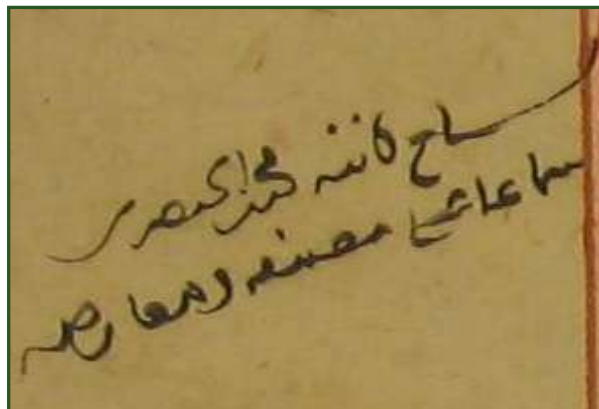 سماع كاتبه محمد الخيضري
سماعا على مصنفه ومعارضة